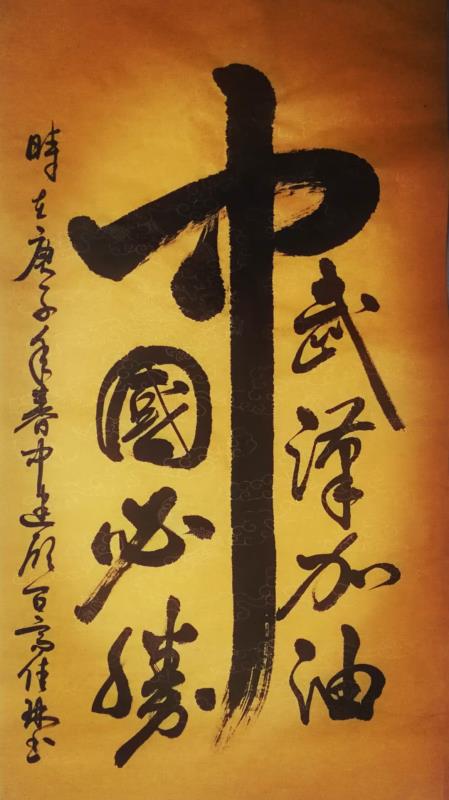 武漢加油
中國必勝
時在庚子年春中 百高佳 书